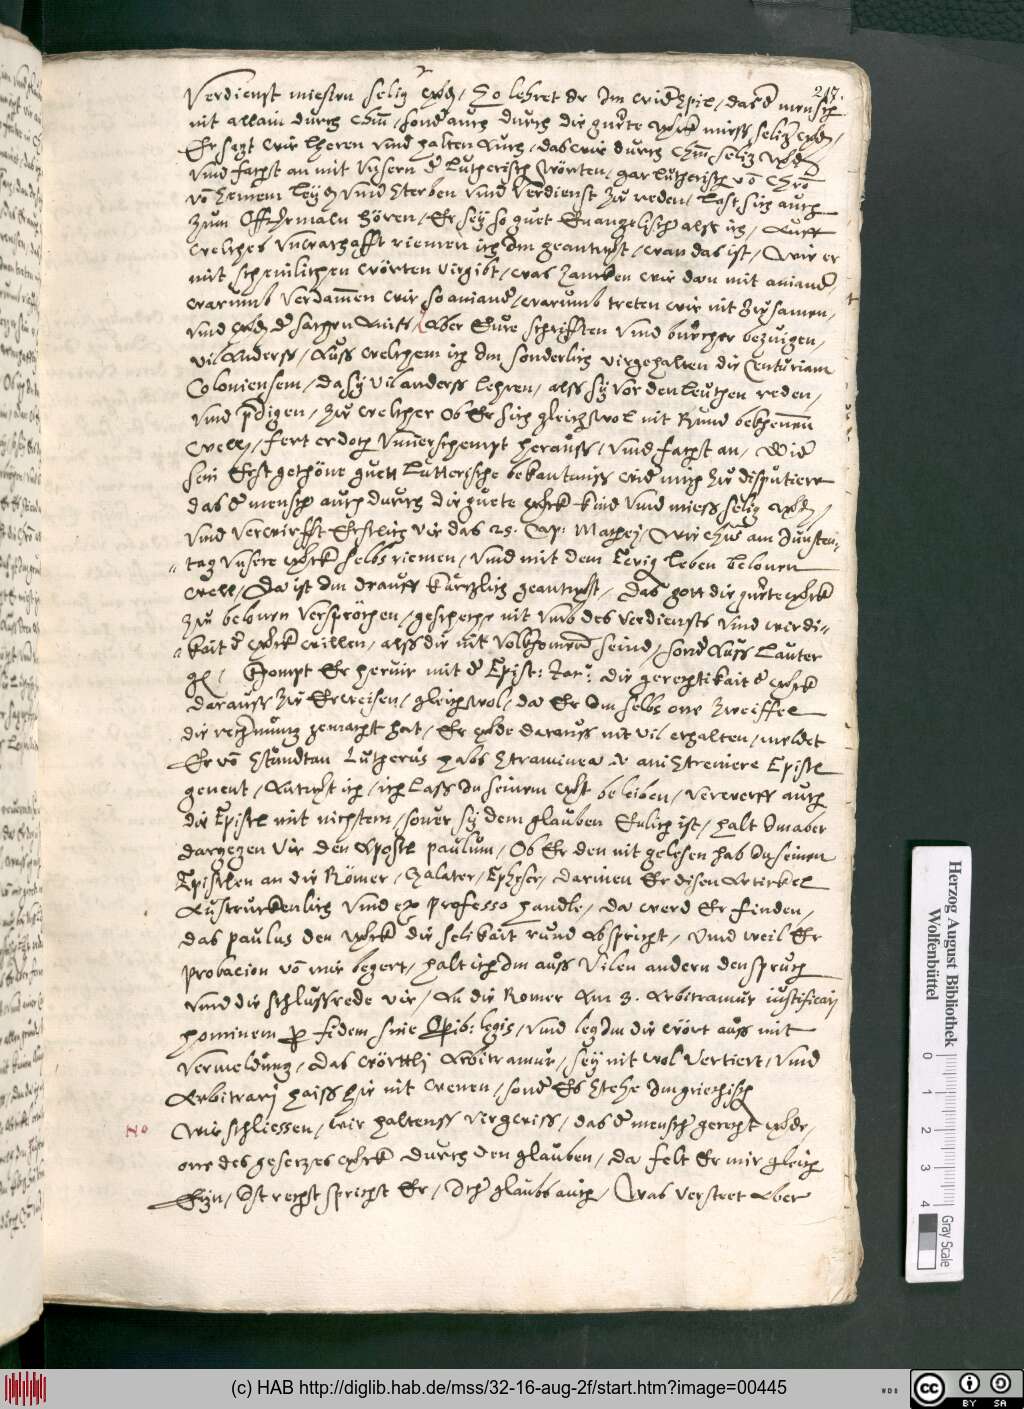 217.
Verdienst miesen selig werdn / So lehret er Im widerspil / das der mensch
nit allain durch Chrm / sonder auch durch die guete werck mieß selig werdn /
Er sagt wir lheren vnd halten auch / das wir durch Chrm selig werdn
vnd facht an mit vnsern der Lutherisch wörten / gar lutherisch vō Chro
vō seinem leydn vnd sterben vnd verdienst zu reden / last sich auch
zum offtermaln hören / Er sey so guet Euangelisch als ich / Auff
welches vnwarhafft riemen ich Im geantwort / wan das ist / wir er
mit scheinlichen wörten virgibt / was zancken wir dan mit ainander
warumb verdammen wir so ainander / warumb treten wir nit zusamen /
vnd werdn der sachen ains / Aber Eure schrifften vnd buecher bezeugen /
vil Anderss / Auss welchem ich Im sonderlich virgehalten die Centuriam
Coloniensem / da sy vil anderss lehren / alss sy vor den leuthen reden /
vnd predigen / zu welcher ob Er sich gleichwol nit Rund bekhennen
wellen / fert er doch vnuerschempt herauß / vnd facht an / wider
sein Erst gethone guett Lutterische bekantnuss wider mich zu disputiern
das der mensch auch durch die guete werck kind vnd mieß selig werdn /
vnd verwirfft Erstlich vir das 25. Cap: Mathej / wir Chrus am Jungsten
tag vnsere werck selbs riemen / vnd mit dem Ewig leben belonen
well / Da ist Im drauff kurtzlich geantwort / Das gott die guete werck
zu belonen versprochen / geschech nit vmb des verdiensts vnd wirdi=
kait der werck willen / alß die nit volkhomen seind / sonder auß lauter
gn / Kompt Er heruir mit der Epist: Jac: die gerechtikait der werck
darauß zu Erweisen / gleichwol / da Er Im selbs one zweiffel
die rechnung gemacht hat / Er werde darauss nit vil erhalten / meldet
Er vō stundtan Lutherus habs Straminea ain Streniere Epistel
genent / Antwort ich / ich lass In seinem wert beleiben / verwerff auch
die Epistel mit nichsten / souer sy dem glauben Enlich ist / halt Im aber
dargegen vir den Apostel paulum / Ob Er den nit gelesen hab In seinen
Epistlen an die Römer / Galater / Epheser / darinen Er disen Artickel
Austruckenlich vnd ex professo handle / da werd Er finden /
das paulus den werck die selikait rund Abspricht / Vnd weil Er
probacion vō mir begert / halt ich Im auß vilen andern den spruch
vnd die schlussrede vir / An die Romer Am 3. Arbitramur iustificarj
hominem p fidem sine Operib: legis / vnd leg Im die wört auß mit
vermeldung / das wörttlj Arbitramur / sey nit wol vertiert / vnd
Arbitrarj haiss hie nit wenen / sonder Es stehe Im griechisch
No wir schliessen / wir haltenss virgewiss / das der mensch gerecht werde /
one des gesetzes werck durch den glauben / da felt Er mir gleich
Ein / Ist recht spricht Er / Ich glaubs auch / Was verstret Aber
Herzog August Bibliothek
Wolfenbüttel
0 1 2 3 4
Gray Scale
(c) HAB http://diglib.hab.de/mss/32-16-aug-2f/start.htm?image=00445
WDB
CC BY SA